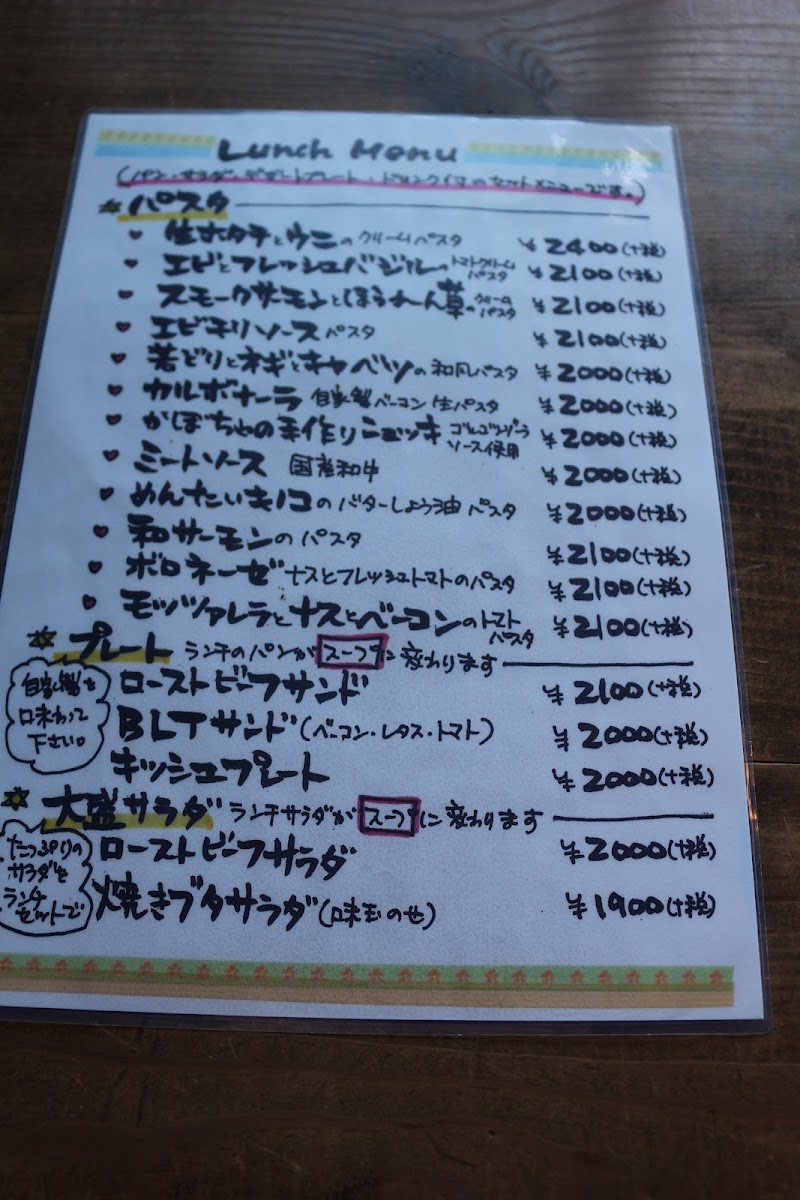 Lunch Menu
(パン・サラダ・デザートプレート・ドリンクイマのセットメニューです。)
パスタ
生ホタテとウニのクリームパスタ ¥2400(+税)
エビとフレッシュバジルのトマトクリームパスタ ¥2100(+税)
スモークサーモンとほうれん草のクリームパスタ ¥2100(+税)
エビキリソースパスタ ¥2100(+税)
若どりとネギとキャベツの和風パスタ ¥2000(+税)
カルボナーラ 自家製ベーコン 生パスタ ¥2000(+税)
かぼちゃの手作りニョッキ ゴルゴンゾーラソース使用 ¥2000(+税)
ミートソース 国産和牛 ¥2000(+税)
めんたいキノコのバターしょう油パスタ ¥2000(+税)
和サーモンのパスタ ¥2100(+税)
ボロネーゼ ナスとフレッシュトマトのパスタ ¥2100(+税)
モッツァレラとナスとベーコンのトマトパスタ ¥2100(+税)
プレート ランチのパンがスープに変わります
自家製を
味わって
下さい。
ローストビーフサンド ¥2100(+税)
BLTサンド(ベーコン・レタス・トマト) ¥2000(+税)
キッシュプレート ¥2000(+税)
大盛サラダ ランチサラダがスープに変わります
たっぷりの
サラダを
ランチ
セットで
ローストビーフサラダ ¥2000(+税)
焼きブタサラダ(味玉のせ) ¥1900(+税)